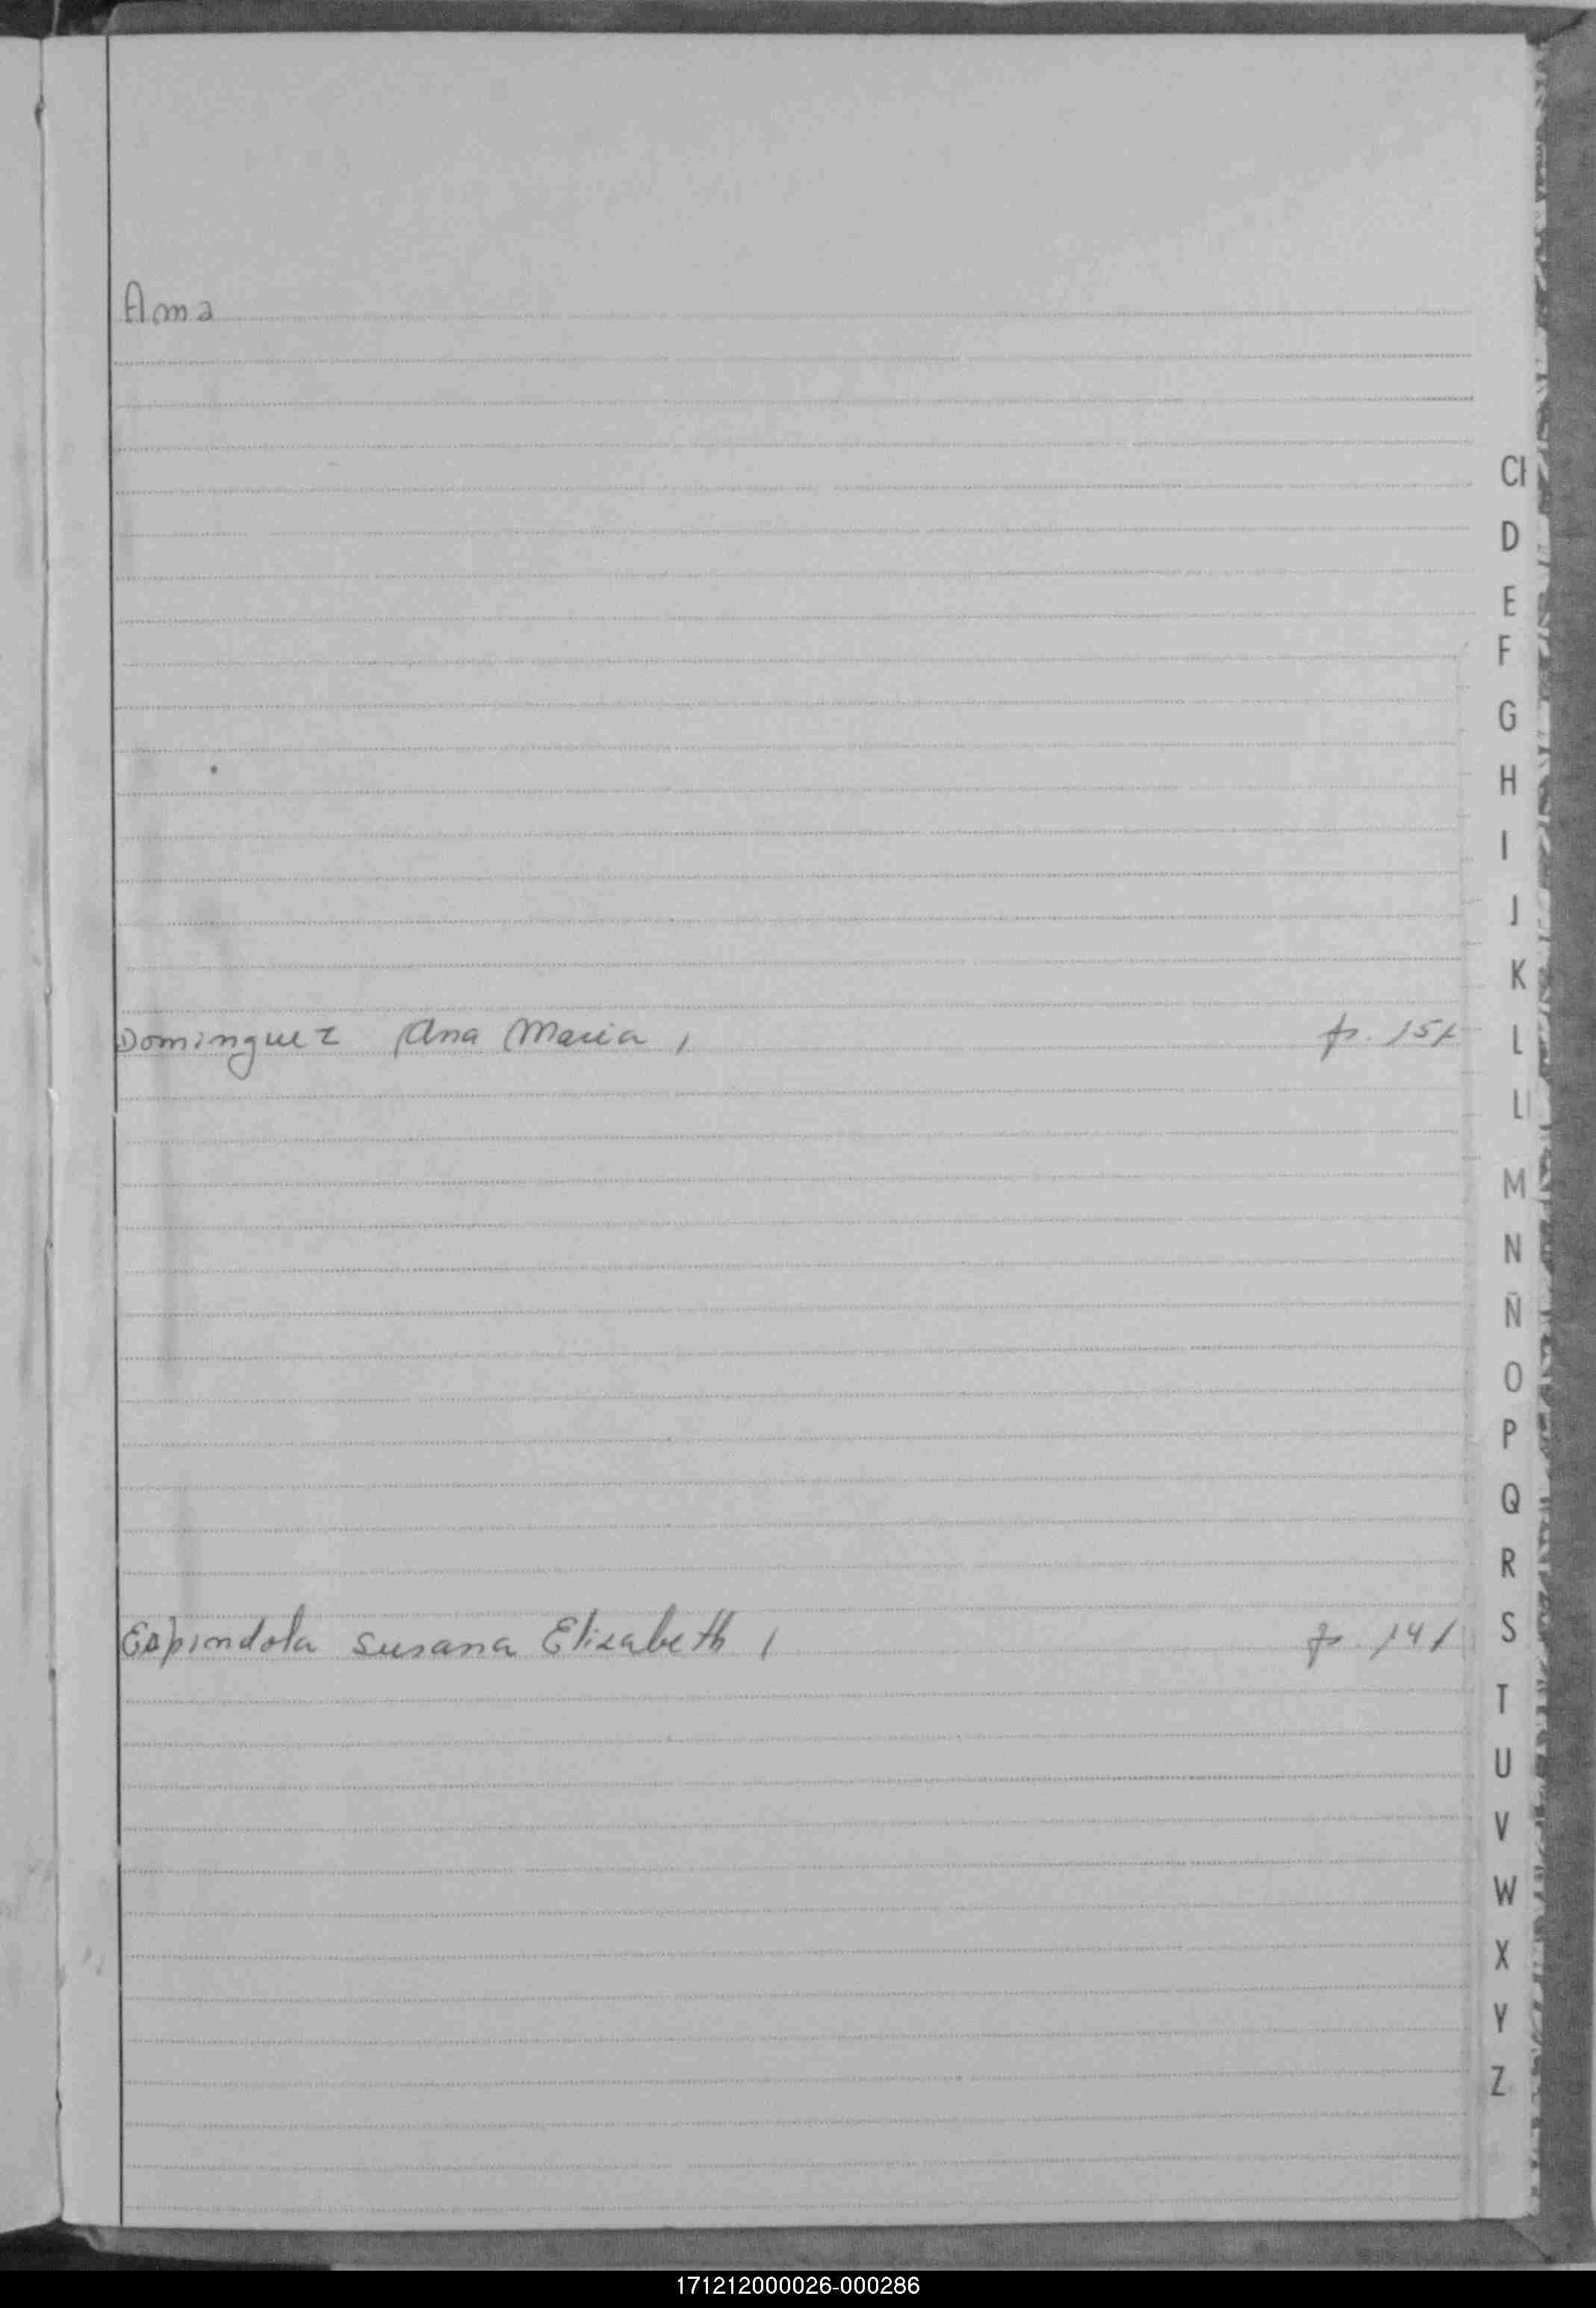 Ama
CH
D
E
F
G
H
I
J
K
Dominguez Ana Maria, p. 151
L
Ll
M
N
Ñ
O
P
Q
R
Espindola Susana Elizabeth, p. 141
S
T
U
V
W
X
Y
Z
171212000026-000286